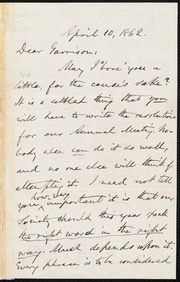 April 10, 1862.
Dear Garrison:
May I "bore" you a
little, for the cause's sake?
It is a settled thing that you
will have to write the resolutions
for our Annual Meeting. No-
body else can do it so well,
and no one else will think of
attempting it. I need not tell
you, how very important it is that our
Society should this year speak
the right word in the right
way. Much depends upon it.
Every phrase is to be considered